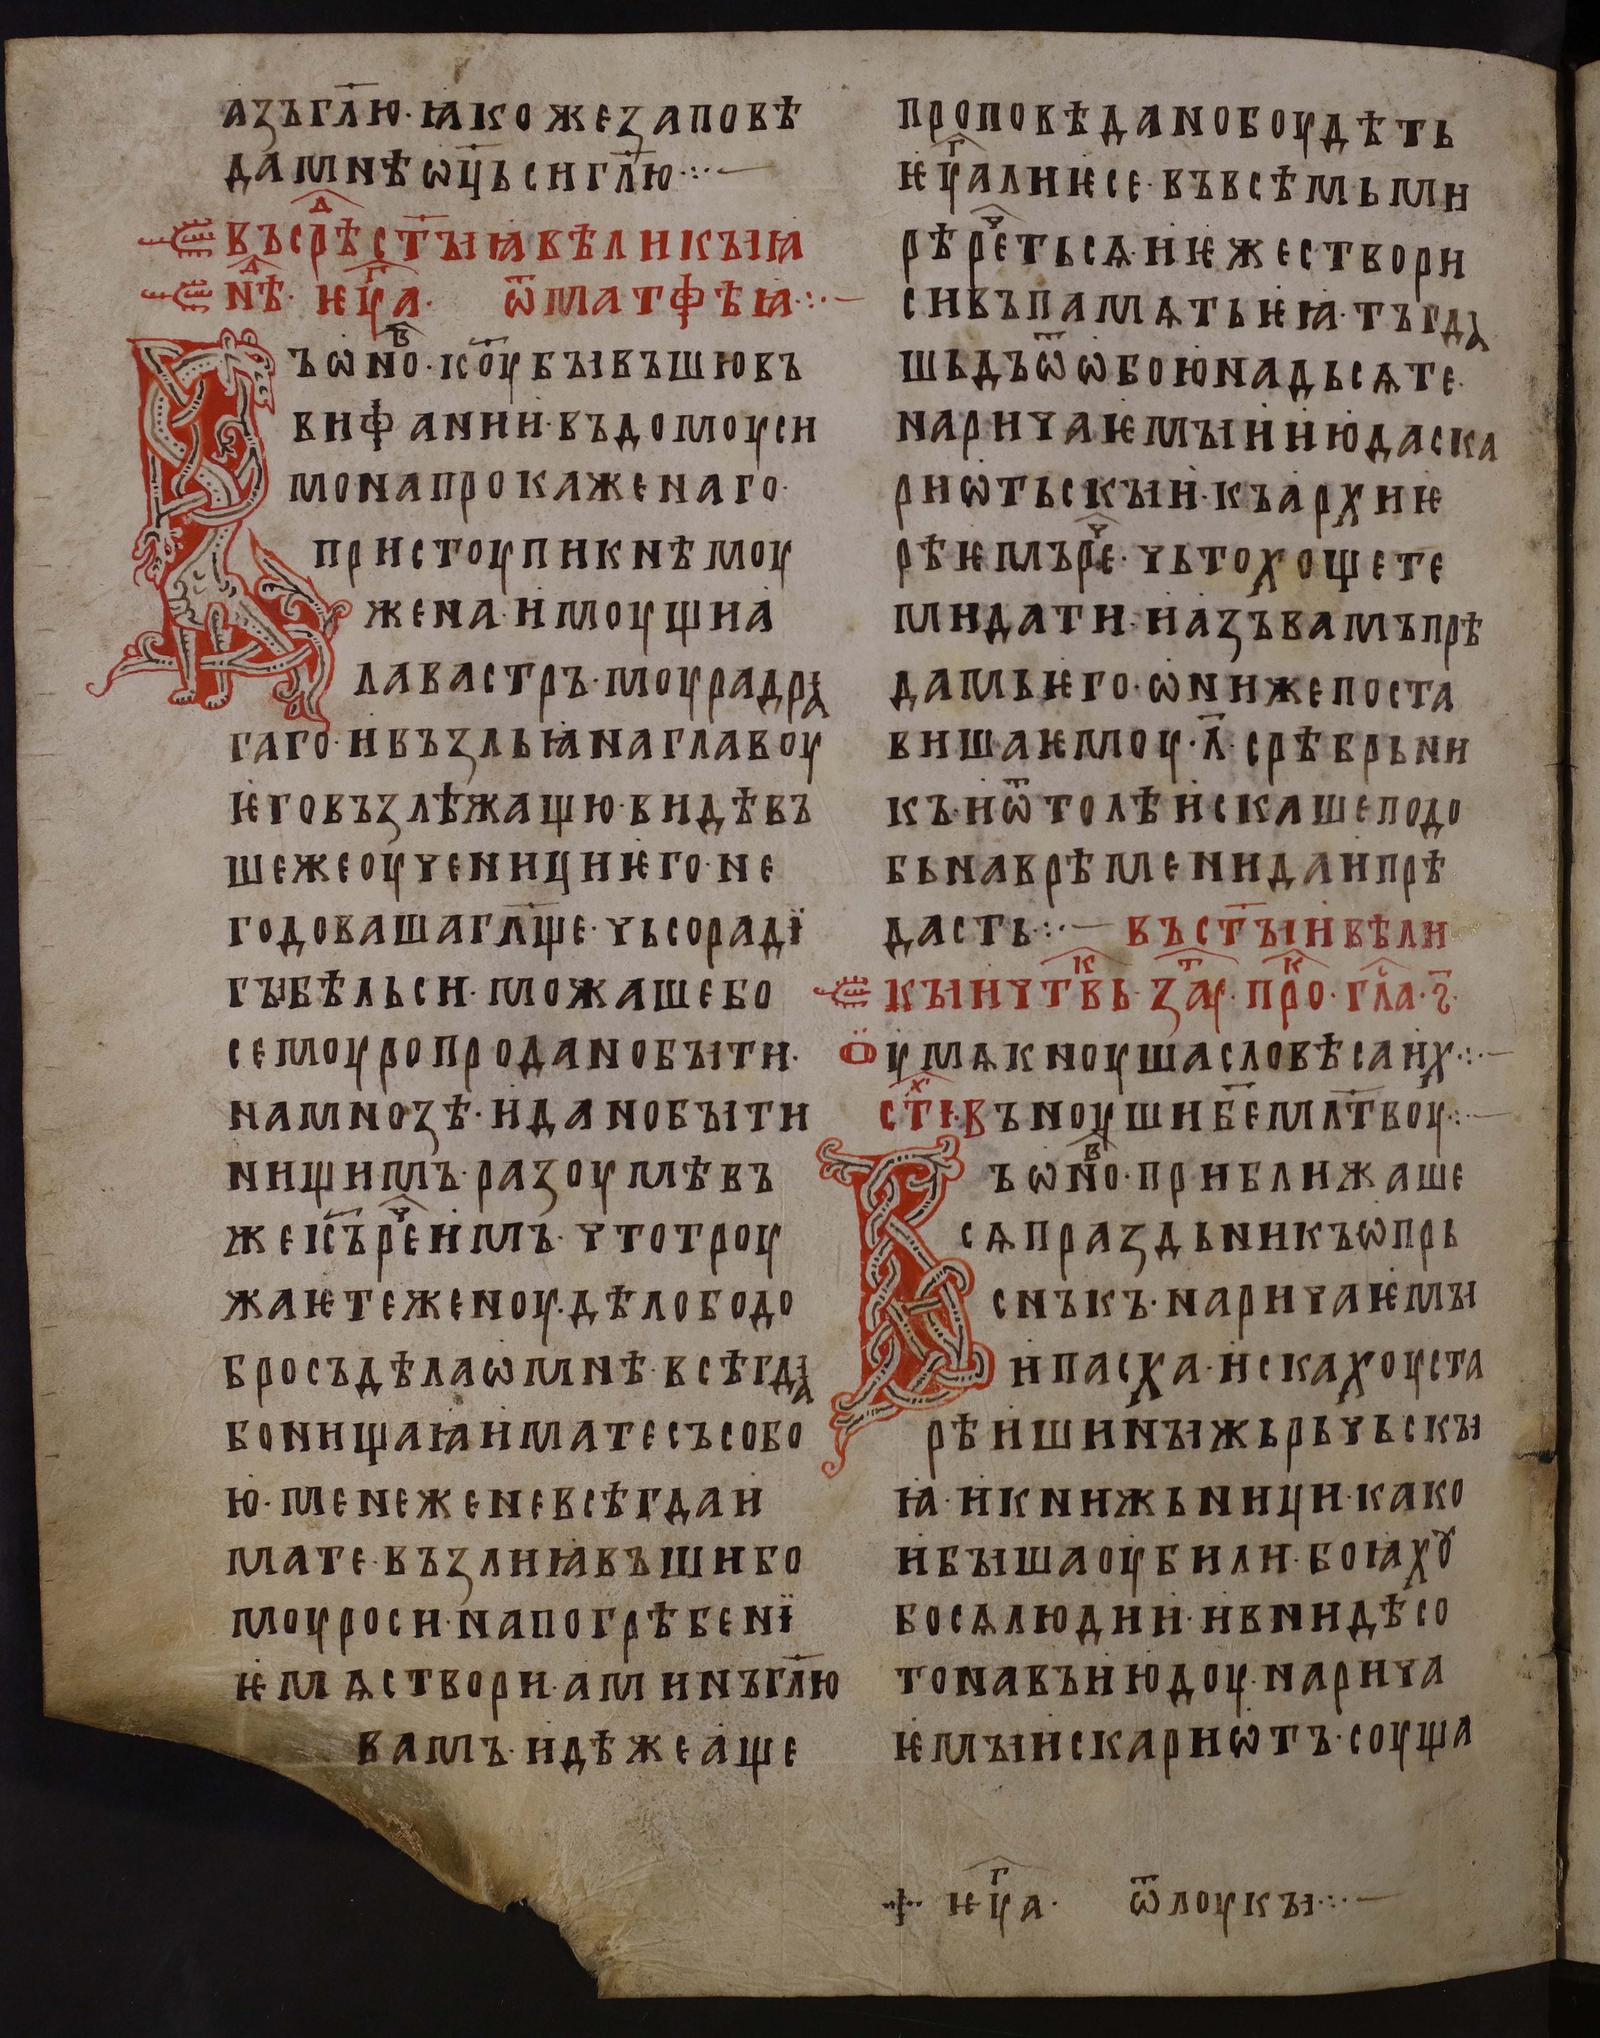 азъгл҃ю·ꙗкожезаповѣ
дамнѣѡц҃ьсигл҃ю·:·—
въсрѣⷣст҃ыꙗвѣликыꙗ
нⷣѣ· ѥѵⷢа· ѿматфѣꙗ·:·—
Въѡноⷡ·ıс҃оубывъшювъ
вифании·въдомоуси
монапрокаженаго·
пристоупикнѣмоу
жена·имоущиа
лавастръ·моурадра
гаго·ивъзльꙗнаглавоу
ѥговъзлѣжащю·видѣвъ
шежеоученициѥго·не
годовашагл҃ще·чьсорадї
гыбѣльси·можашебо
семоуропроданобыти·
намнозѣ·иданобыти
нищимъ·разоумѣвъ
жеıс҃ъреⷱимъ·чтотроу
жаѥтеженоу·дѣлободо
бросъдѣлаѡмнѣ·всѣгда
бонищаꙗиматесъсобо
ю·менеженевсѣгдаи
мате·възлиꙗвъшибо
моуроси·напогрѣбенї
ѥмѧствори·аминъгл҃ю
вамъ·идѣжеаще
проповѣданобоудѣть
ѥѵⷢалиѥсе·въвсѣмьми
рѣреⷱтьсѧ·иѥжествори
сивъпамѧтьѥꙗ·тъгда
шьдъѿѡбоюнадьсѧте·
наричаѥмыииюдаска
риѡтьскыи·къархиѥ
рѣѥмъреⷱ·чьтохощете
мидати·иазъвамъпрѣ
дамьѥго·ѡнижепоста
вишаѥмоу·л҃·срѣбрьни
къ·иѿтолѣискашеподо
бьнаврѣменидаипрѣ
дасть·:·— въст҃ыивѣли
кыичтвⷦь·заⷮу·проⷦ·глⷭа·г҃·
Оумѧкноушасловѣсаих·:·—
стⷯı·Въноушиб҃емл҃твоу·:·—
Въѡноⷡ·приближаше
сѧпраздьникъѡпрь
снъкъ·наричаѥмы
ипасха·искахоуста
рѣишиныжьрьчьскы
ꙗ·икнижьници·како
ибышаоубили·боꙗхꙋ
босѧлюдии·ивнидѣсо
тонавъиюдоу·нарича
ѥмыискариѡтъ·соуща
⁜ ѥѵⷢа· ѿлоукы·:·—